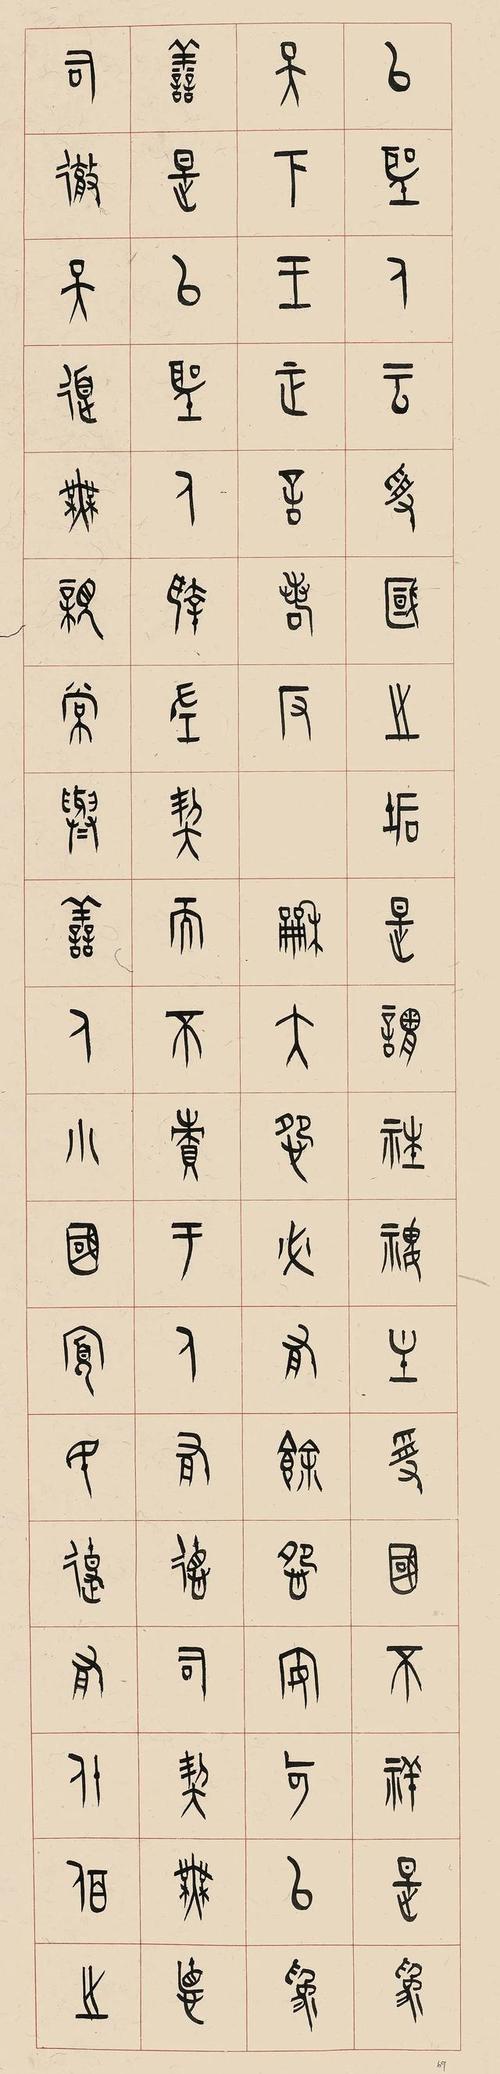 以聖人云受國之垢是謂社稷主受國不祥是為
天下王正言若反 龢大怨必有餘怨安可以為
善是以聖人執左契而不責于人有德司契無德
司徹天道無親常與善人小國寡民使有什佰之